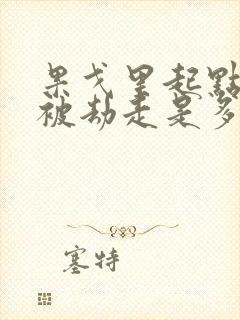 果戈里起點
被劫走是多
塞特